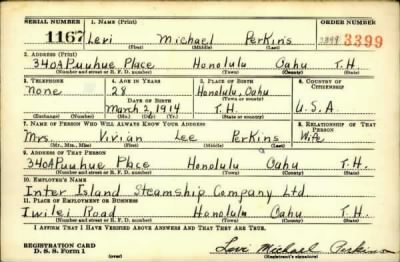 SERIAL NUMBER 1. NAME (Print) ORDER NUMBER
1167 Levi Michael Perkins 3398 3399
(First) (Middle) (Last)
2. ADDRESS (Print)
340A Puuhue Place Honolulu Oahu T.H.
(Number and street or R. F. D. number) (Town) (County) (State)
3. TELEPHONE 4. AGE IN YEARS 5. PLACE OF BIRTH 6. COUNTRY OF CITIZENSHIP
None 28 Honolulu, Oahu
DATE OF BIRTH (Town or county)
March 2, 1914 T.H. U.S.A.
(Exchange) (Number) (Mo.) (Day) (Yr.) (State or country)
7. NAME OF PERSON WHO WILL ALWAYS KNOW YOUR ADDRESS 8. RELATIONSHIP OF THAT PERSON
Mrs. Vivian Lee Perkins Wife
(Mr., Mrs., Miss) (First) (Middle) (Last)
9. ADDRESS OF THAT PERSON
340A Puuhue Place Honolulu Oahu T.H.
(Number and street or R. F. D. number) (Town) (County) (State)
10. EMPLOYER'S NAME
Inter Island Steamship Company Ltd.
11. PLACE OF EMPLOYMENT OR BUSINESS
Iwilei Road Honolulu Oahu T.H.
(Number and street or R. F. D. number) (Town) (County) (State)
I AFFIRM THAT I HAVE VERIFIED ABOVE ANSWERS AND THAT THEY ARE TRUE.
REGISTRATION CARD
D. S. S. Form 1 (over) Levi Michael Perkins
(Registrant's signature)